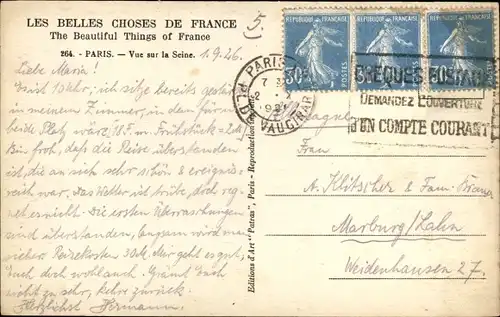 LES BELLES CHOSES DE FRANCE
The Beautiful Things of France
264. - PARIS. — Vue sur la Seine. 1.9.26.
5.
Liebe Maria!
ich sitze bereits
in meinem Zimmer, in dem für
beide Platz wäre. Frühstück
Bin froh, daß die Reise überstanden
ist, die an sich sehr schön & ereignis-
reich war. Das Wetter ist trübe, doch reg-
net es nicht. Die ersten Überraschungen
sind überstanden, langsam wird man
Reisekosten 30 M. Mir geht es gut,
Euch doch wohl auch. Grüßt Euch
nicht zu sehr, kehre zurück
Herzlichst Hermann.
Editions d'Art "Patras", Paris - Reproduction
REPUBLIQUE FRANÇAISE
REPUBLIQUE FRANÇAISE
REPUBLIQUE FRANÇAISE
30c
POSTES
PARIS
VAUGIRARD
CHEQUES POSTAUX
DEMANDEZ L'OUVERTURE
D'UN COMPTE COURANT
Frau
A. Klitscher & Fam.
Marburg/Lahn
Weidenhausen 27.